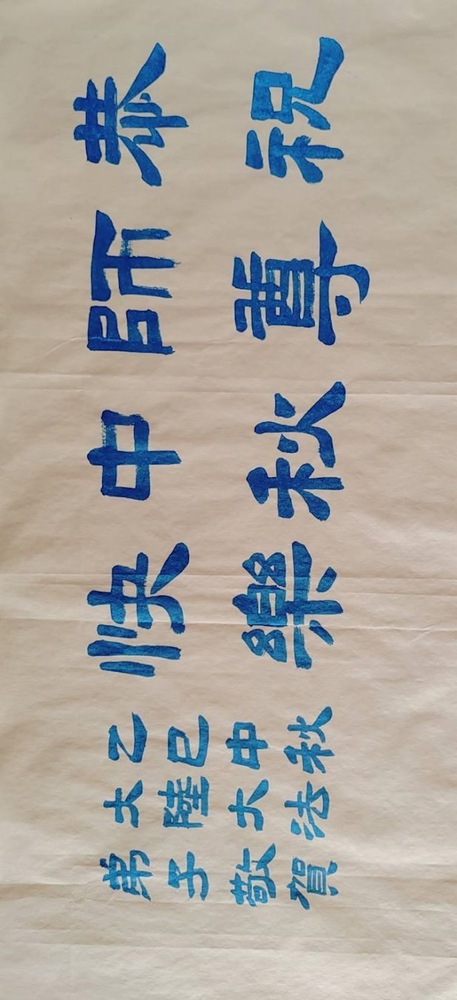 恭祝
師尊
中秋
快樂
乙巳中秋
大陸大法
弟子敬賀